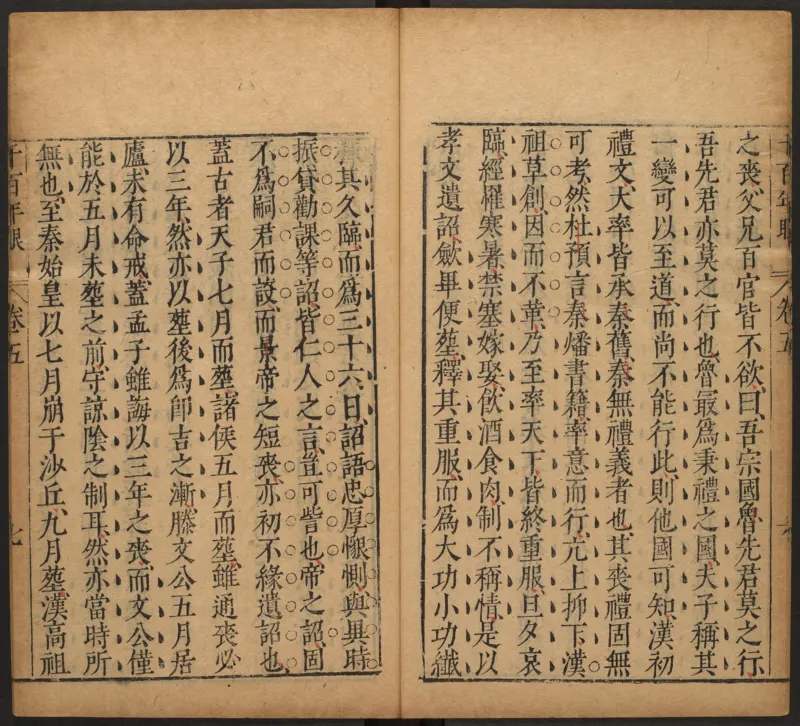 之喪父兄百官皆不欲曰吾宗國魯先君莫之行
吾先君亦莫之行也魯最爲秉禮之國夫子稱其
一變可以至道而尚不能行此則他國可知漢初
禮文大率皆承秦舊秦無禮義者也其喪禮固無
可考然杜預言秦燔書籍率意而行亢上抑下漢
祖草創因而不革乃至率天下皆終重服旦夕哀
臨經罹寒暑禁塞嫁娶飲酒食肉制不稱情是以
孝文遺詔斂畢便塟釋其重服而爲大功小功纖
其久臨而爲三十六日詔語忠厚懇惻與其時
振貸勸課等詔皆仁人之言豈可訾也帝之詔固
不爲嗣君而設而景帝之短喪亦初不緣遺詔也
蓋古者天子七月而塟諸侯五月而塟雖通喪必
以三年然亦以塟後爲卽吉之漸滕文公五月居
廬未有命戒蓋孟子雖誨以三年之喪而文公僅
能於五月未塟之前守諒陰之制耳然亦當時所
無也至秦始皇以七月崩于沙丘九月塟漢高祖
千百年眼
卷五
七
千百年眼
卷五
六